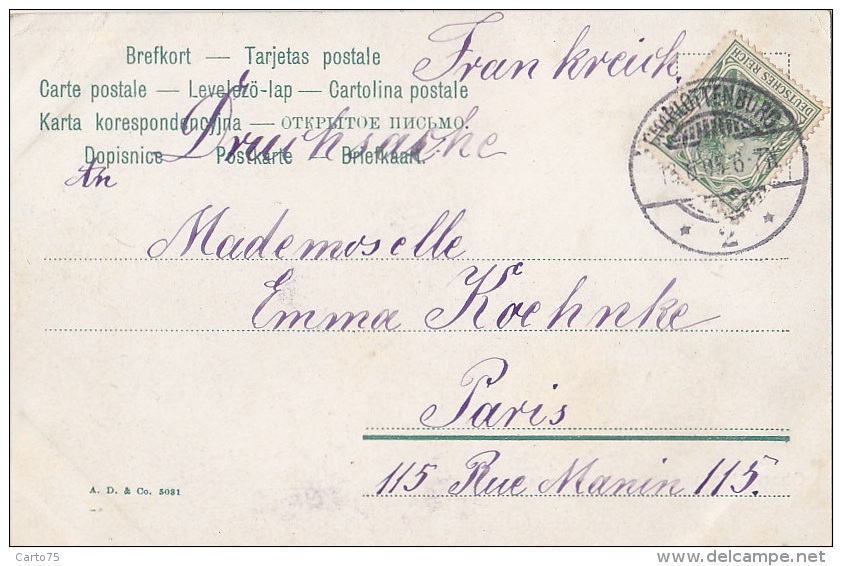 Brefkort — Tarjetas postale
Frankreich.
Carte postale — Levelező-lap — Cartolina postale
Karta korespondencyjna — ОТКРЫТОЕ ПИСЬМО.
Drucksache
Dopisnice Postkarte — Briefkaart.
An
DEUTSCHES REICH
CHARLOTTENBURG
* 2 *
Mademoselle
Emma Koehnke
Paris
115 Rue Manin 115.
A. D. & Co. 5031
Carto75
delcampe.net